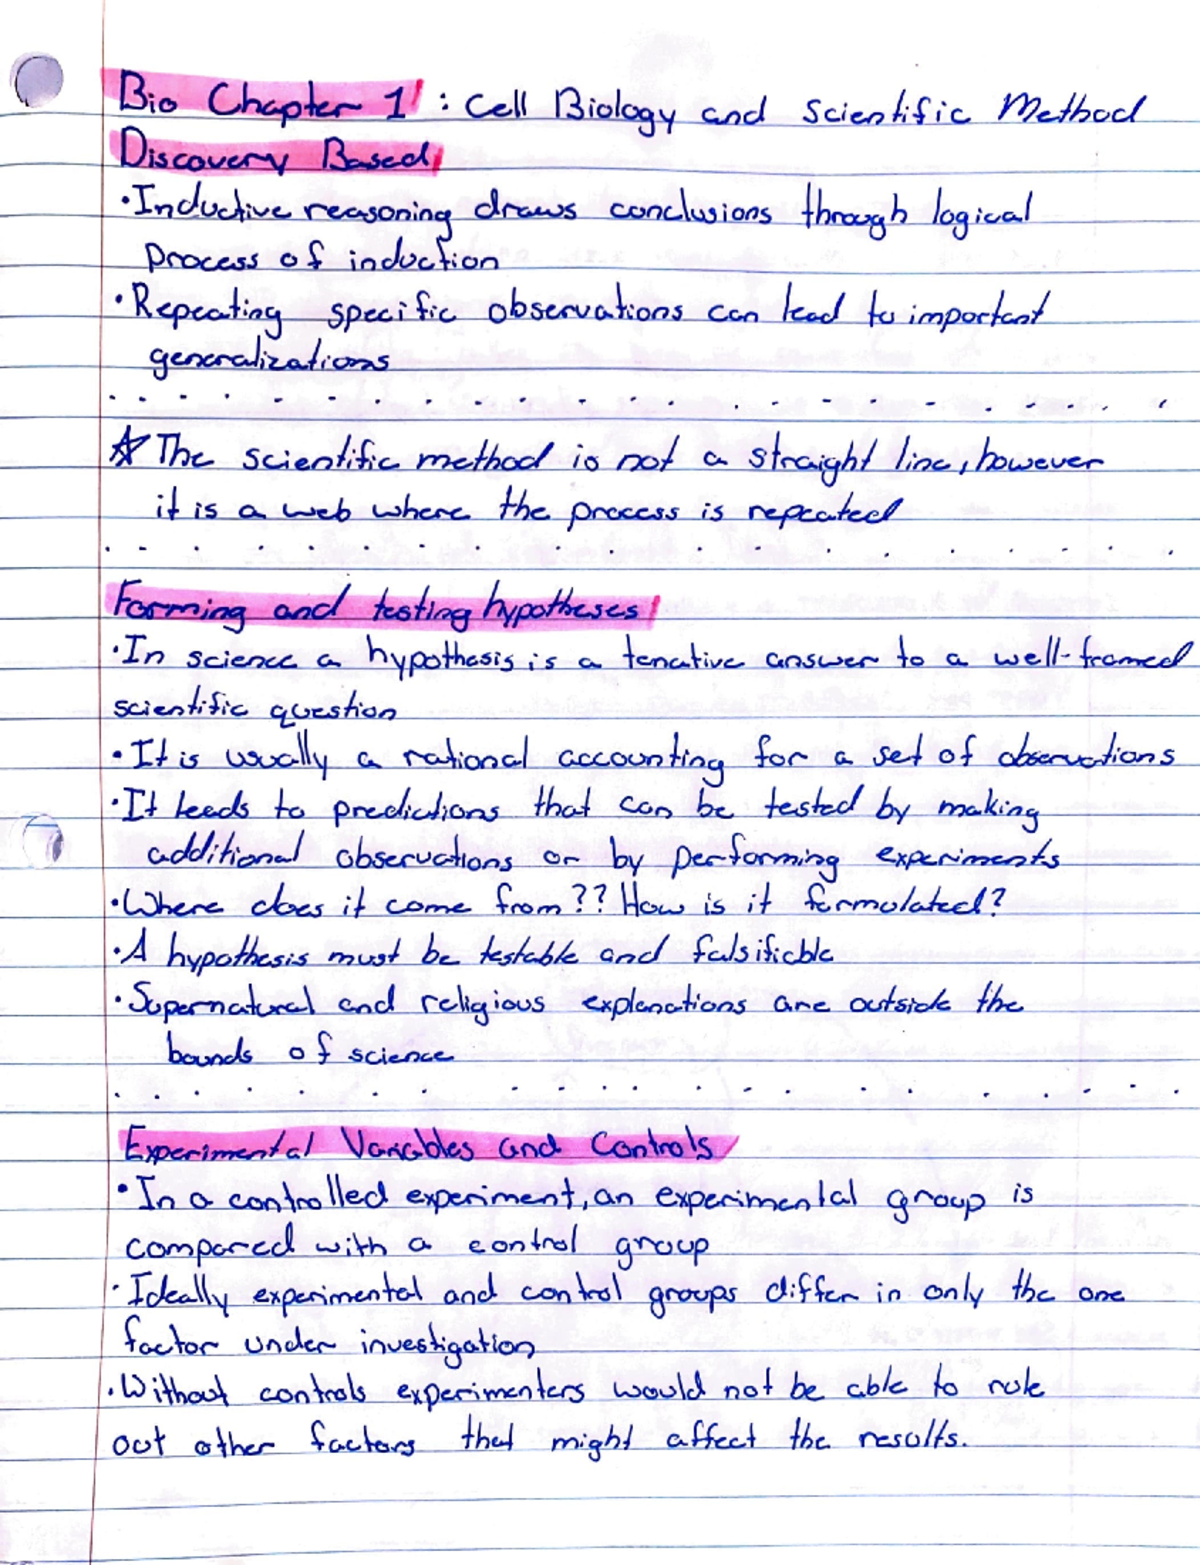 Bio Chapter 1 : Cell Biology and Scientific Method
Discovery Based
• Inductive reasoning draws conclusions through logical
process of induction
• Repeating specific observations can lead to important
generalizations
☆ The scientific method is not a straight line, however
it is a web where the process is repeated
Forming and testing hypotheses
• In science a hypothesis is a tenative answer to a well-framed
scientific question
• It is usually a rational accounting for a set of observations
• It leads to predictions that can be tested by making
additional observations or by performing experiments
• Where does it come from?? How is it formulated?
• A hypothesis must be testable and falsifiable
• Supernatural and religious explanations are outside the
bounds of science
Experimental Variables and Controls
• In a controlled experiment, an experimental group is
compared with a control group
• Ideally experimental and control groups differ in only the one
factor under investigation
• Without controls experimenters would not be able to rule
out other factors that might affect the results.